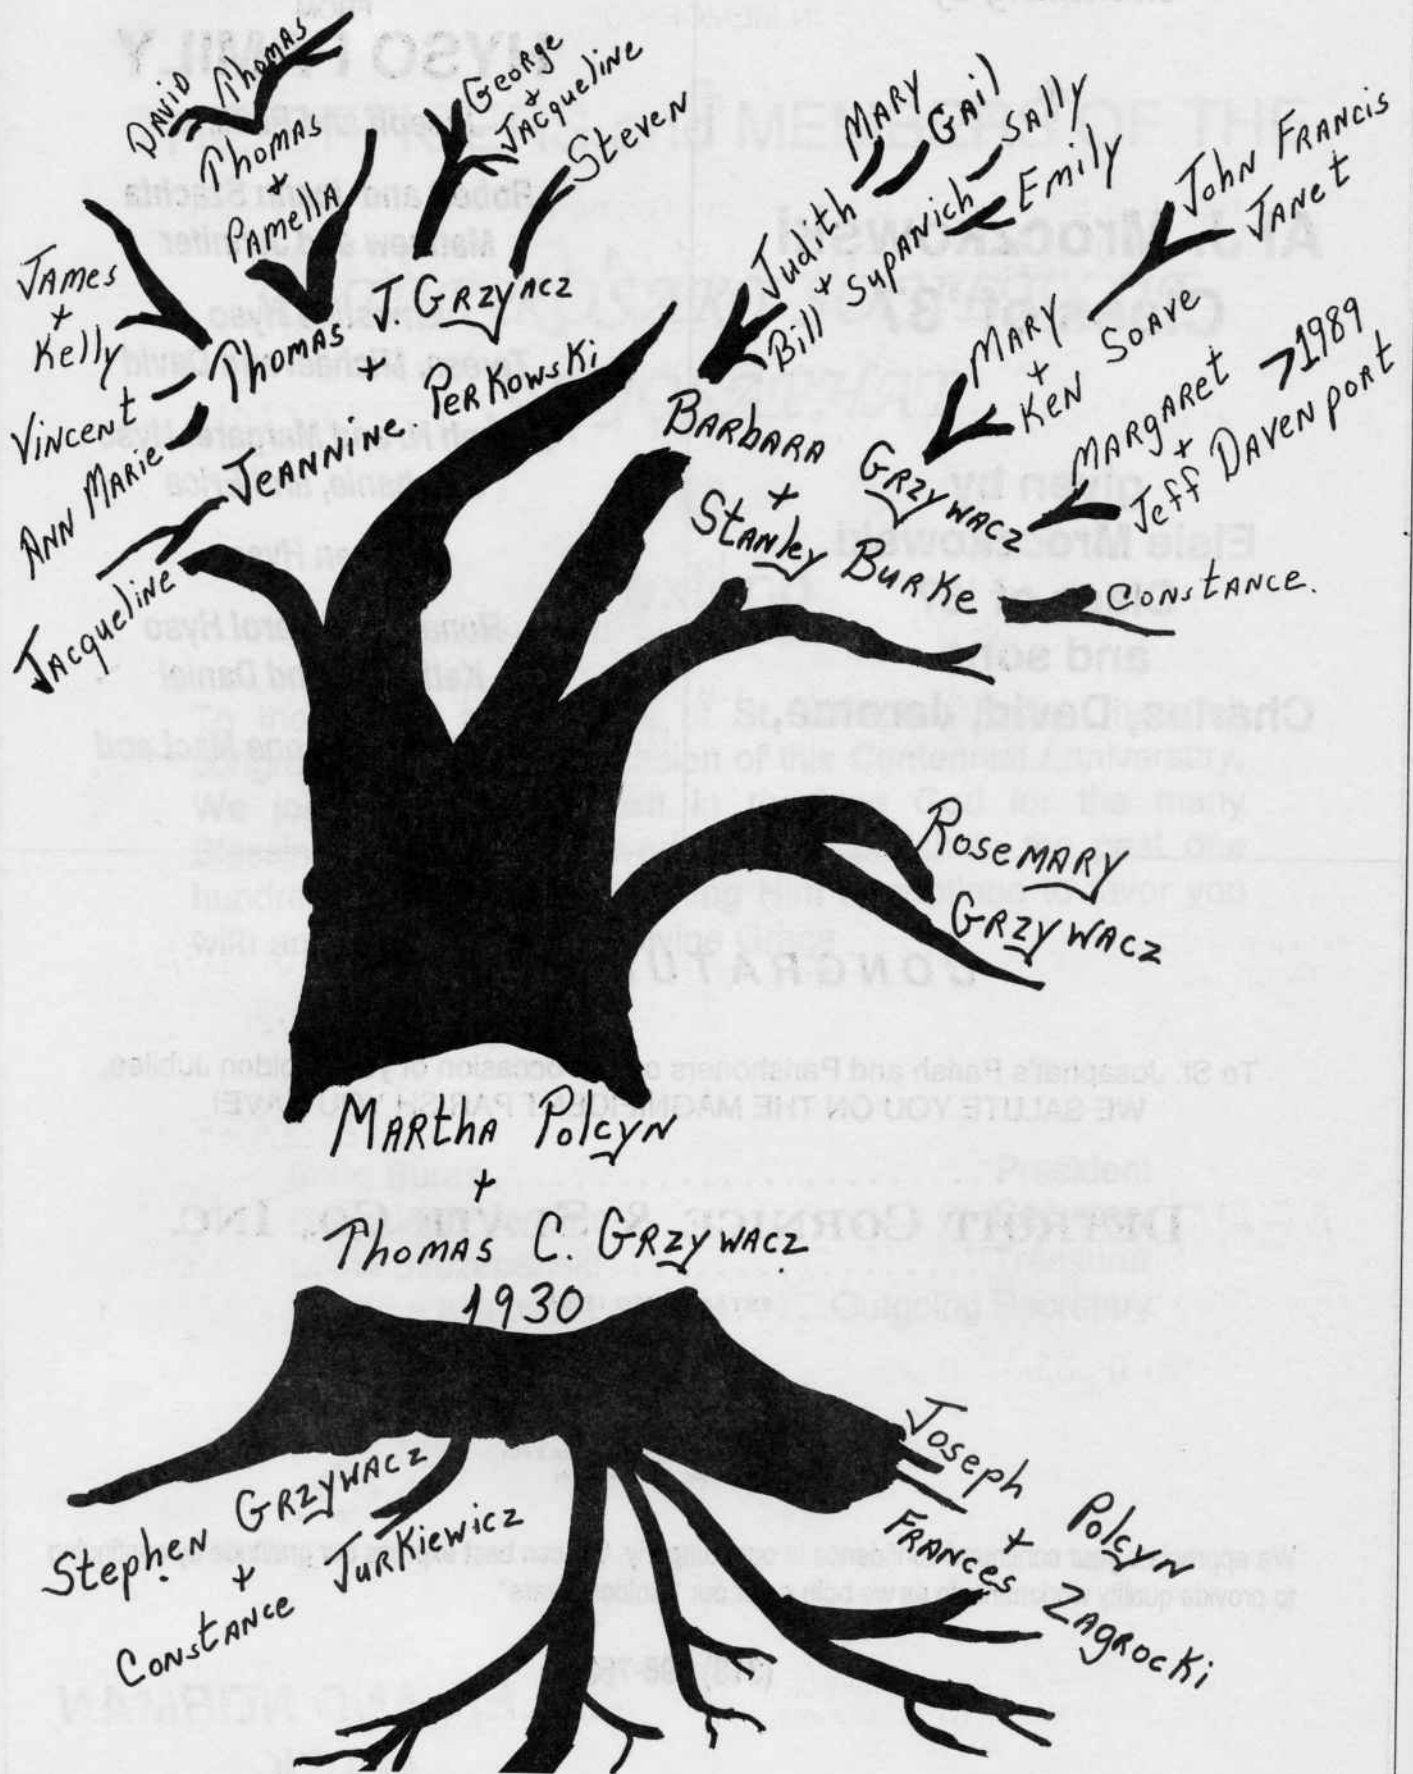 David Thomas
Thomas
+
Pamella
George
+
Jacqueline
Steven
James
+
Kelly
Vincent
Ann Marie
Thomas J. Grzywacz
+
Jeannine Perkowski
Jacqueline
Mary
Gail
Sally
Emily
Judith
+
Bill Supanich
John Francis
Janet
Mary
+
Ken Soave
Margaret > 1989
+
Jeff Davenport
Barbara Grzywacz
+
Stanley Burke
Constance.
Rosemary
Grzywacz
Martha Polcyn
+
Thomas C. Grzywacz
1930
Stephen Grzywacz
+
Constance Jurkiewicz
Joseph Polcyn
+
Frances Zagrocki